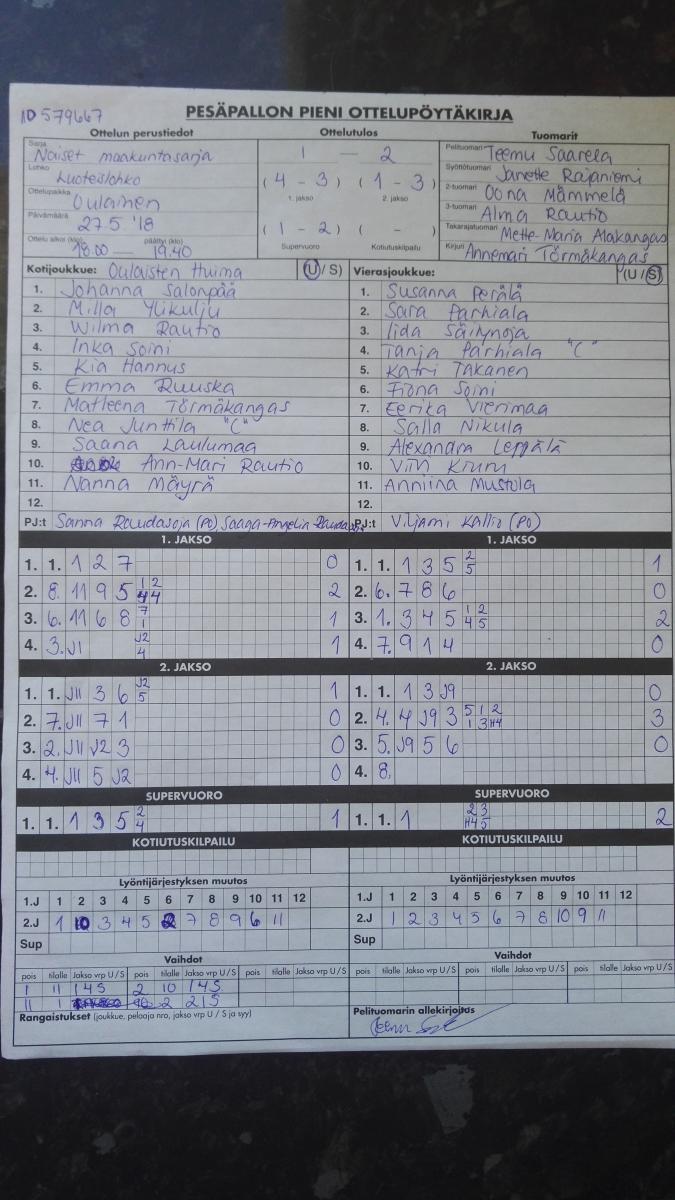 ID 579667
PESÄPALLON PIENI OTTELUPÖYTÄKIRJA
Ottelun perustiedot Ottelutulos Tuomarit
Sarja Naiset maakuntasarja
Lohko Luoteislohko
Ottelupaikka Oulainen
Päivämäärä 27.5.'18
Ottelu alkoi (klo) 18.00 — päättyi (klo) 19.40
1 — 2
(4 - 3) (1 - 3)
1. jakso 2. jakso
(1 - 2) ( - )
Supervuoro Kotiutuskilpailu
Pelituomari Teemu Saarela
Syöttötuomari Janette Rajaniemi
2-tuomari Oona Mämmelä
3-tuomari Alma Rautio
Takarajatuomari Mette-Maria Alakangas
Kirjuri Annemari Törmäkangas
Kotijoukkue: Oulaisten Huima (U / S)
1. Johanna Salonpää
2. Milla Ylikulju
3. Wilma Rautio
4. Inka Soini
5. Kia Hannus
6. Emma Ruuska
7. Matleena Törmäkangas
8. Nea Junttila "C"
9. Saana Laulumaa
10. Ann-Mari Rautio
11. Nanna Mäyrä
12.
PJ:t Sanna Raudasoja (PO) Saaga-Angelia
Vierasjoukkue: (U / S)
1. Susanna Perälä
2. Sara Parhiala
3. Iida Säilynoja
4. Tanja Parhiala "C"
5. Katri Takanen
6. Fiona Soini
7. Eerika Vierimaa
8. Salla Nikula
9. Alexandra Leppälä
10.
11. Anniina Mustola
12.
PJ:t Viljami Kallio (PO)
1. JAKSO
1. 1. 1 2 7 0
2. 8. 11 9 5 1 2 4 4 2
3. 6. 11 6 8 7 1 1
4. 3. J1 J2 4 1
2. JAKSO
1. 1. J11 3 6 J2 5 1
2. 7. J11 7 1 0
3. 2. J11 J2 3 0
4. 4. J11 5 J2 0
SUPERVUORO
1. 1. 1 3 5 2 4 1
1. JAKSO
1. 1. 1 3 5 2 5 1
2. 6. 7 8 6 0
3. 1. 3 4 5 1 2 4 5 2
4. 7. 9 1 4 0
2. JAKSO
1. 1. 1 3 J9 0
2. 4. 4 J9 3 5 1 2 1 3 H4 3
3. 5. J9 5 6 0
4. 8.
SUPERVUORO
1. 1. 1 2 3 H4 5 2
KOTIUTUSKILPAILU
KOTIUTUSKILPAILU
Lyöntijärjestyksen muutos
1.J 1 2 3 4 5 6 7 8 9 10 11 12
2.J 1 10 3 4 5 2 7 8 9 6 11
Sup
Lyöntijärjestyksen muutos
1.J 1 2 3 4 5 6 7 8 9 10 11 12
2.J 1 2 3 4 5 6 7 8 10 9 11
Sup
Vaihdot
pois tilalle Jakso vrp U / S pois tilalle Jakso vrp U / S pois tilalle Jakso vrp U / S
1 11 1 4 S 2 10 1 4 S
11 1 10 2 2 1 S
Rangaistukset (joukkue, pelaaja nro, jakso vrp U / S ja syy)
Vaihdot
pois tilalle Jakso vrp U / S pois tilalle Jakso vrp U / S pois tilalle Jakso vrp U / S
Pelituomarin allekirjoitus